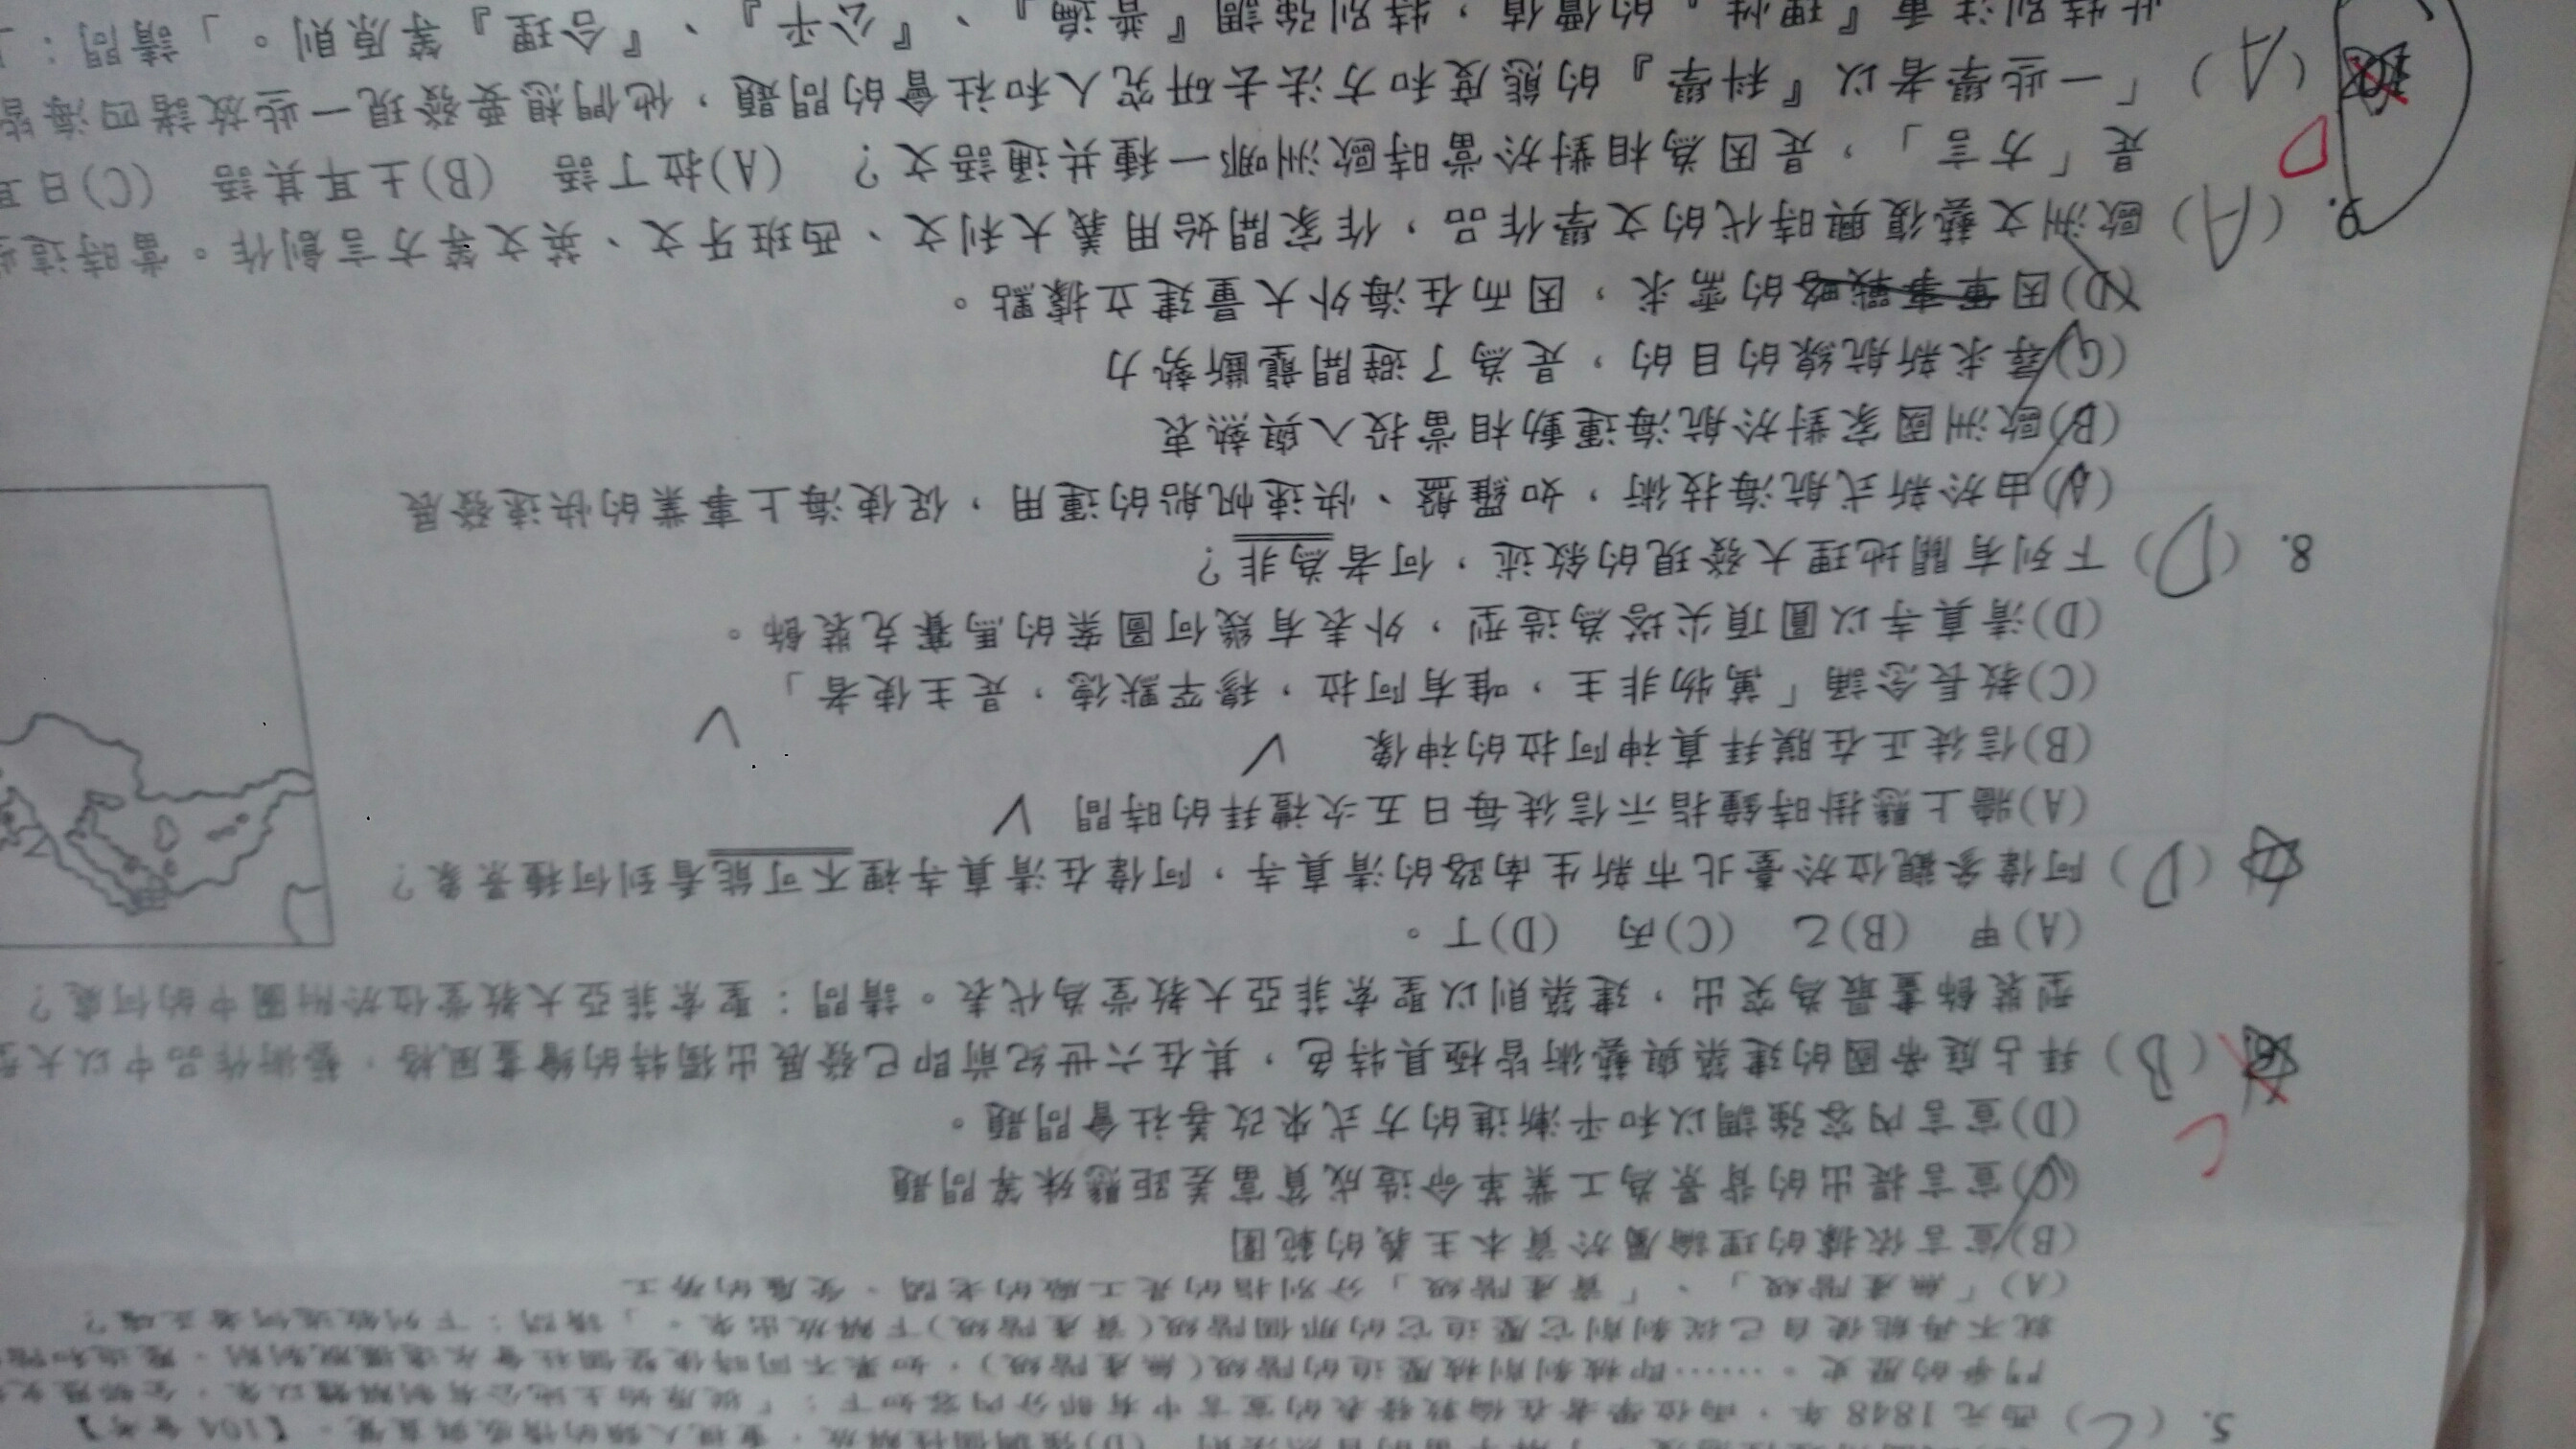 5. (C) 西元1848年，兩位學者在倫敦發表的宣言中有部分內容如下：「從原始土地公有制解體以來，全部歷史
鬥爭的歷史。……即被剝削被壓迫的階級(無產階級)，如果不同時使整個社會永遠擺脫剝削、壓迫和階
就不再能使自己從剝削它壓迫它的那個階級(資產階級)下解放出來。」請問：下列敘述何者正確？
(A)「無產階級」、「資產階級」分別指的是工廠的老闆、受雇的勞工
(B)宣言依據的理論屬於資本主義的範圍
(C)宣言提出的背景為工業革命造成貧富差距懸殊等問題
(D)宣言內容強調以和平漸進的方式來改善社會問題。
C
6. (B) 拜占庭帝國的建築與藝術皆極具特色，其在六世紀前即已發展出獨特的繪畫風格，藝術作品中以大型
型裝飾畫最為突出，建築則以聖索非亞大教堂為代表。請問：聖索非亞大教堂位於附圖中的何處？
(A)甲 (B)乙 (C)丙 (D)丁。
(D) 阿偉參觀位於臺北市新生南路的清真寺，阿偉在清真寺裡不可能看到何種景象？
(A)牆上懸掛時鐘指示信徒每日五次禮拜的時間
(B)信徒正在膜拜真神阿拉的神像
(C)教長念誦「萬物非主，唯有阿拉，穆罕默德，是主使者」
(D)清真寺以圓頂尖塔為造型，外表有幾何圖案的馬賽克裝飾。
8. (D) 下列有關地理大發現的敘述，何者為非？
(A)由於新式航海技術，如羅盤、快速帆船的運用，促使海上事業的快速發展
(B)歐洲國家對於航海運動相當投入與熱衷
(C)尋求新航線的目的，是為了避開壟斷勢力
(D)因軍事戰略的需求，因而在海外大量建立據點。
9. (A) 歐洲文藝復興時代的文學作品，作家開始用義大利文、西班牙文、英文等方言創作。當時這些
是「方言」，是因為相對於當時歐洲哪一種共通語文？ (A)拉丁語 (B)土耳其語 (C)日耳
D
10. (A) 「一些學者以『科學』的態度和方法去研究人和社會的問題，他們想要發現一些放諸四海皆
此特別注重『理性』的價值，特別強調『普遍』、『公平』、『合理』等原則。」請問：